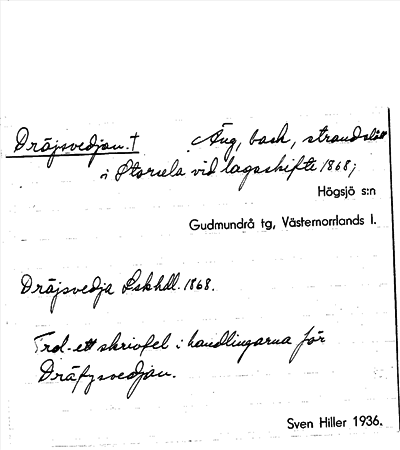 Dräjsvedjan. † Äng, back, strandslått
i Storsela vid lagaskifte 1868;
Högsjö s:n
Gudmundrå tg, Västernorrlands l.
Dräjsvedja Lskhdl. 1868.
Trol. ett skrivfel i handlingarna för
Dräfsvedjan.
Sven Hiller 1936.